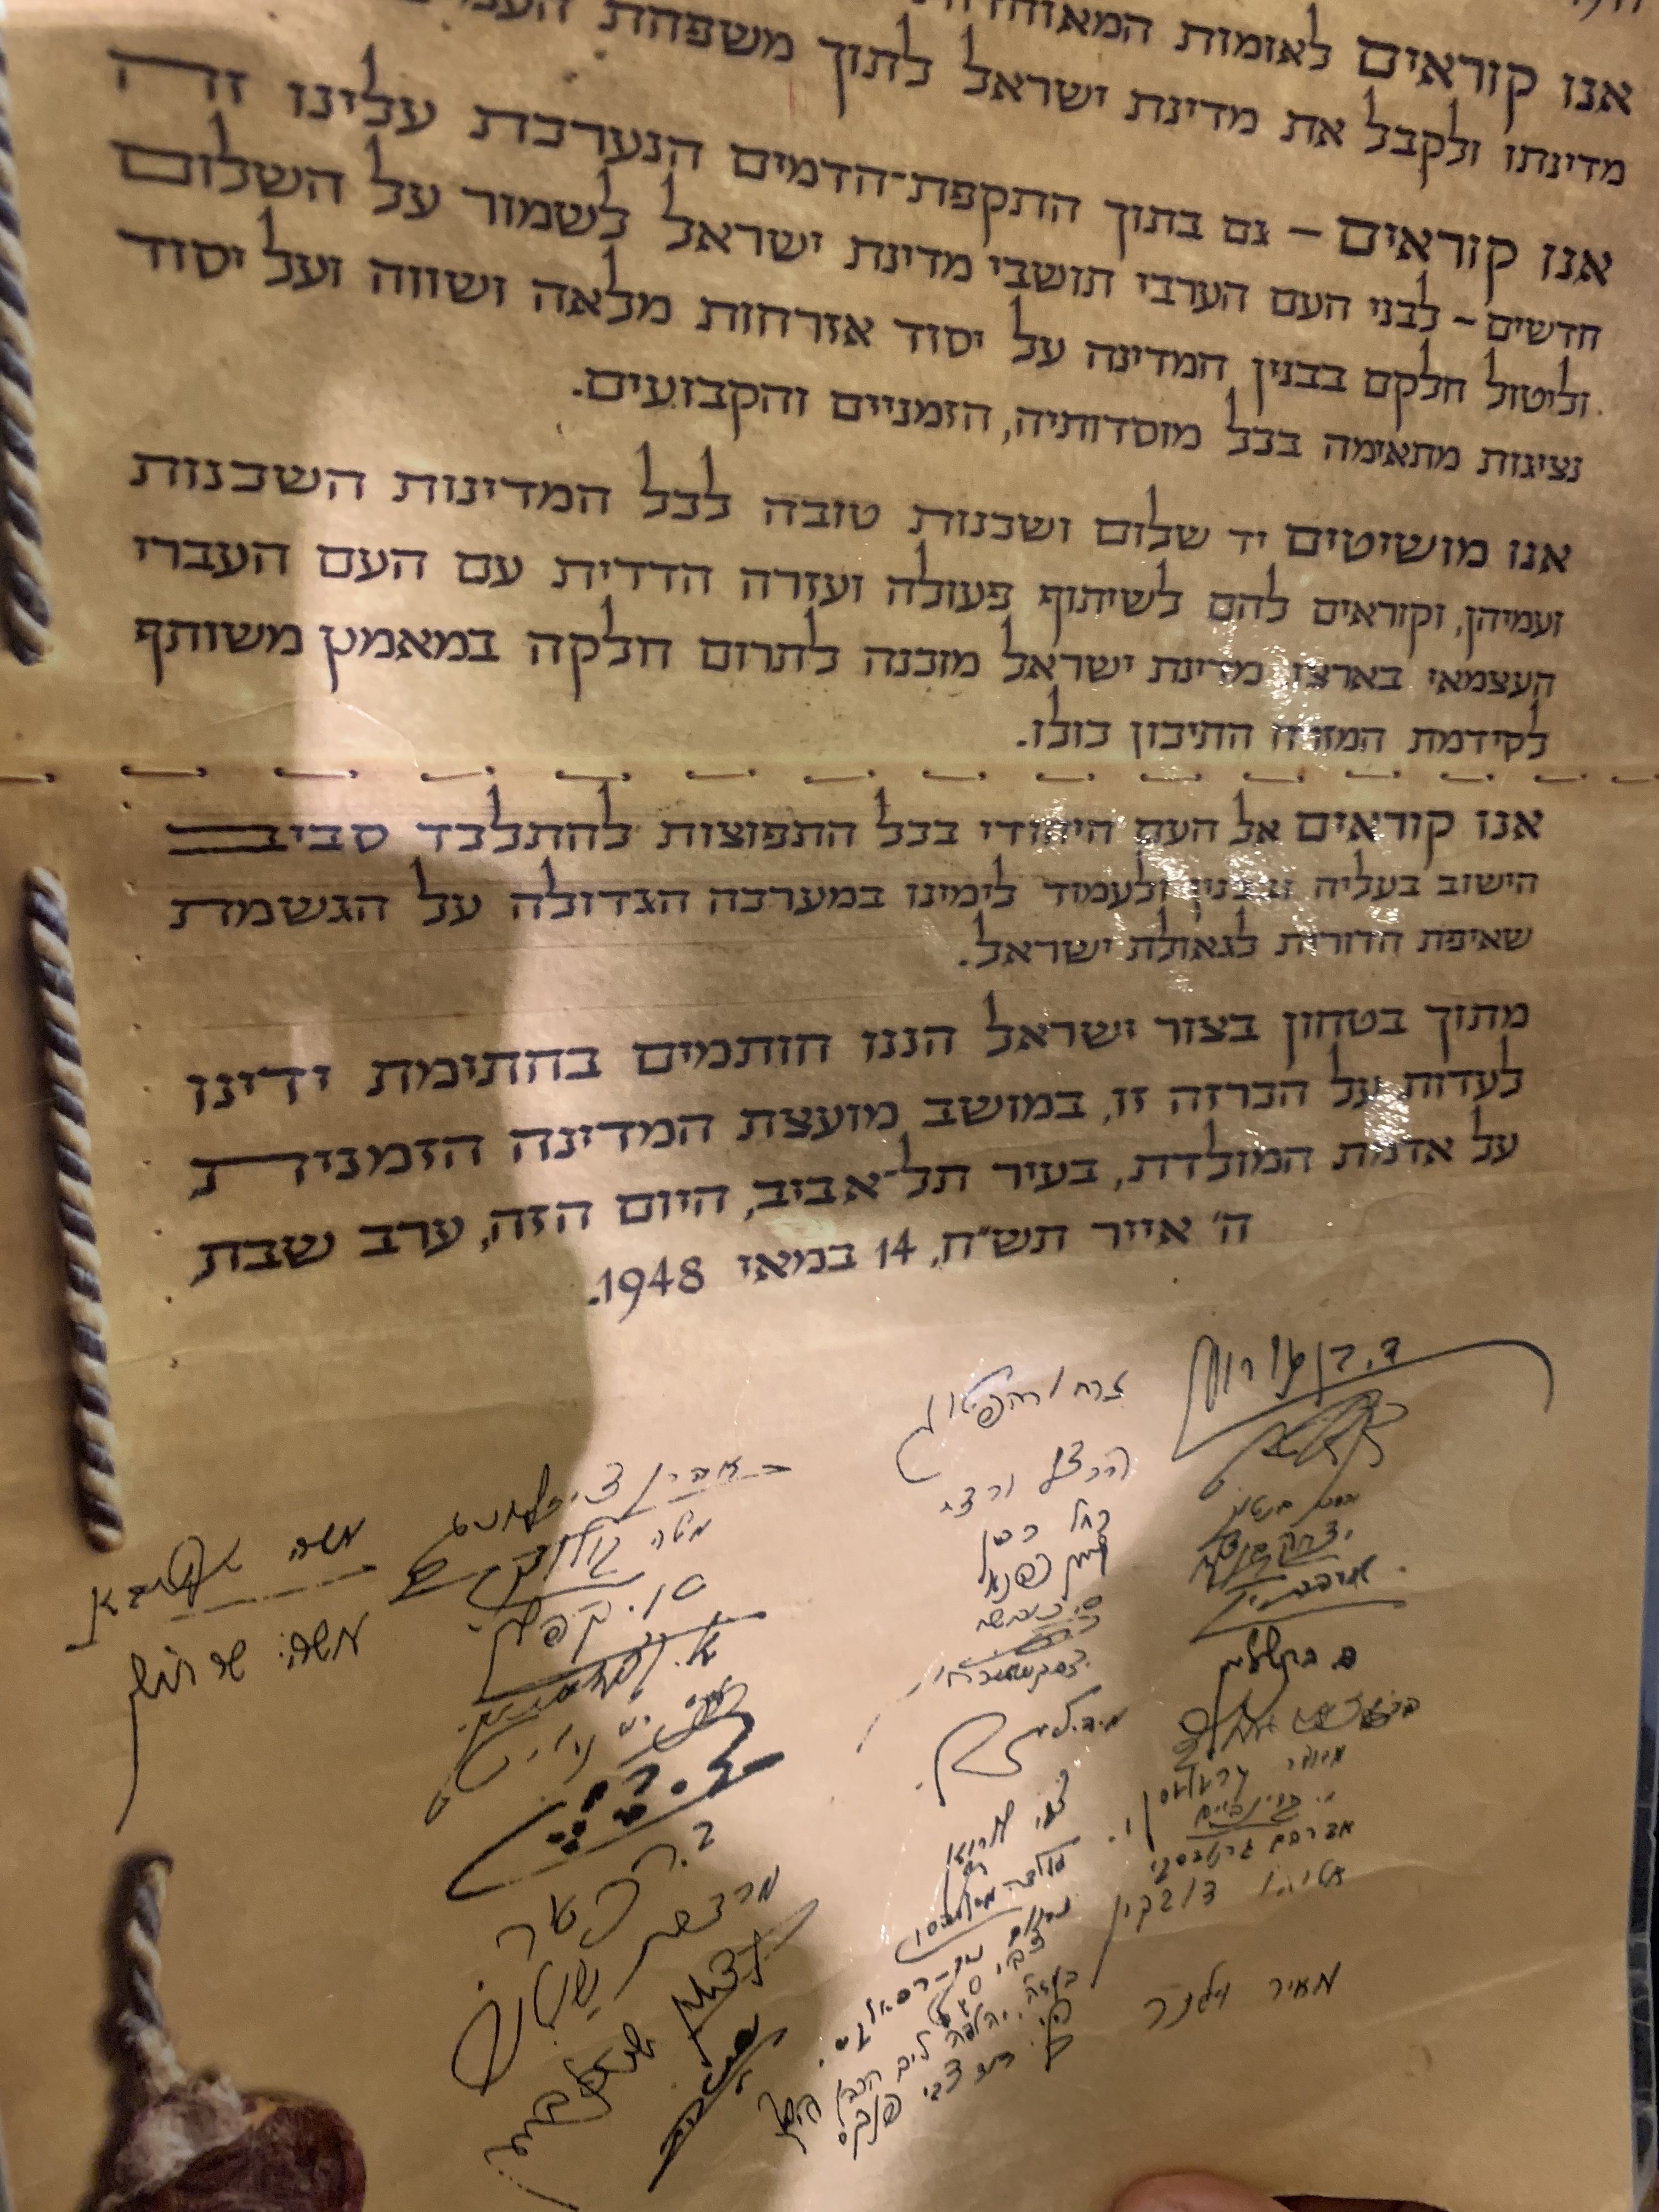 אנו קוראים לאומות המאוחדות
מדינתו ולקבל את מדינת ישראל לתוך משפחת
אנו קוראים – גם בתוך התקפת־הדמים הנערכת עלינו זה
חדשים – לבני העם הערבי תושבי מדינת ישראל לשמור על השלום
וליטול חלקם בבנין המדינה על יסוד אזרחות מלאה ושווה ועל יסוד
נציגות מתאימה בכל מוסדותיה, הזמניים והקבועים.
אנו מושיטים יד שלום ושכנות טובה לכל המדינות השכנות
ועמיהן, וקוראים להם לשיתוף פעולה ועזרה הדדית עם העם העברי
העצמאי בארצו. מדינת ישראל מוכנה לתרום חלקה במאמץ משותף
לקידמת המזרח התיכון כולו.
אנו קוראים אל העם היהודי בכל התפוצות להתלכד סביב
הישוב בעליה ובבנין ולעמוד לימינו במערכה הגדולה על הגשמת
שאיפת הדורות לגאולת ישראל.
מתוך בטחון בצור ישראל הננו חותמים בחתימת ידינו
לעדות על הכרזה זו, במושב מועצת המדינה הזמנית,
על אדמת המולדת, בעיר תל־אביב, היום הזה, ערב שבת,
ה׳ אייר תש״ח, 14 במאי 1948.
ד. בן גוריון
יצחק בן צבי
אליהו דובקין
מאיר וילנר
זרח ורהפטיג
הרצל ורדי
רחל כהן
סעדיה כובשי
צבי לוריא
גולדה מאירסון
נחום ניר־רפאלקס
צבי סגל
משה קולודני
א. קפלן
פ. רוזן
ד. רמז
ב. שטרית
מרדכי שטנר
משה שפירא
משה שרתוק